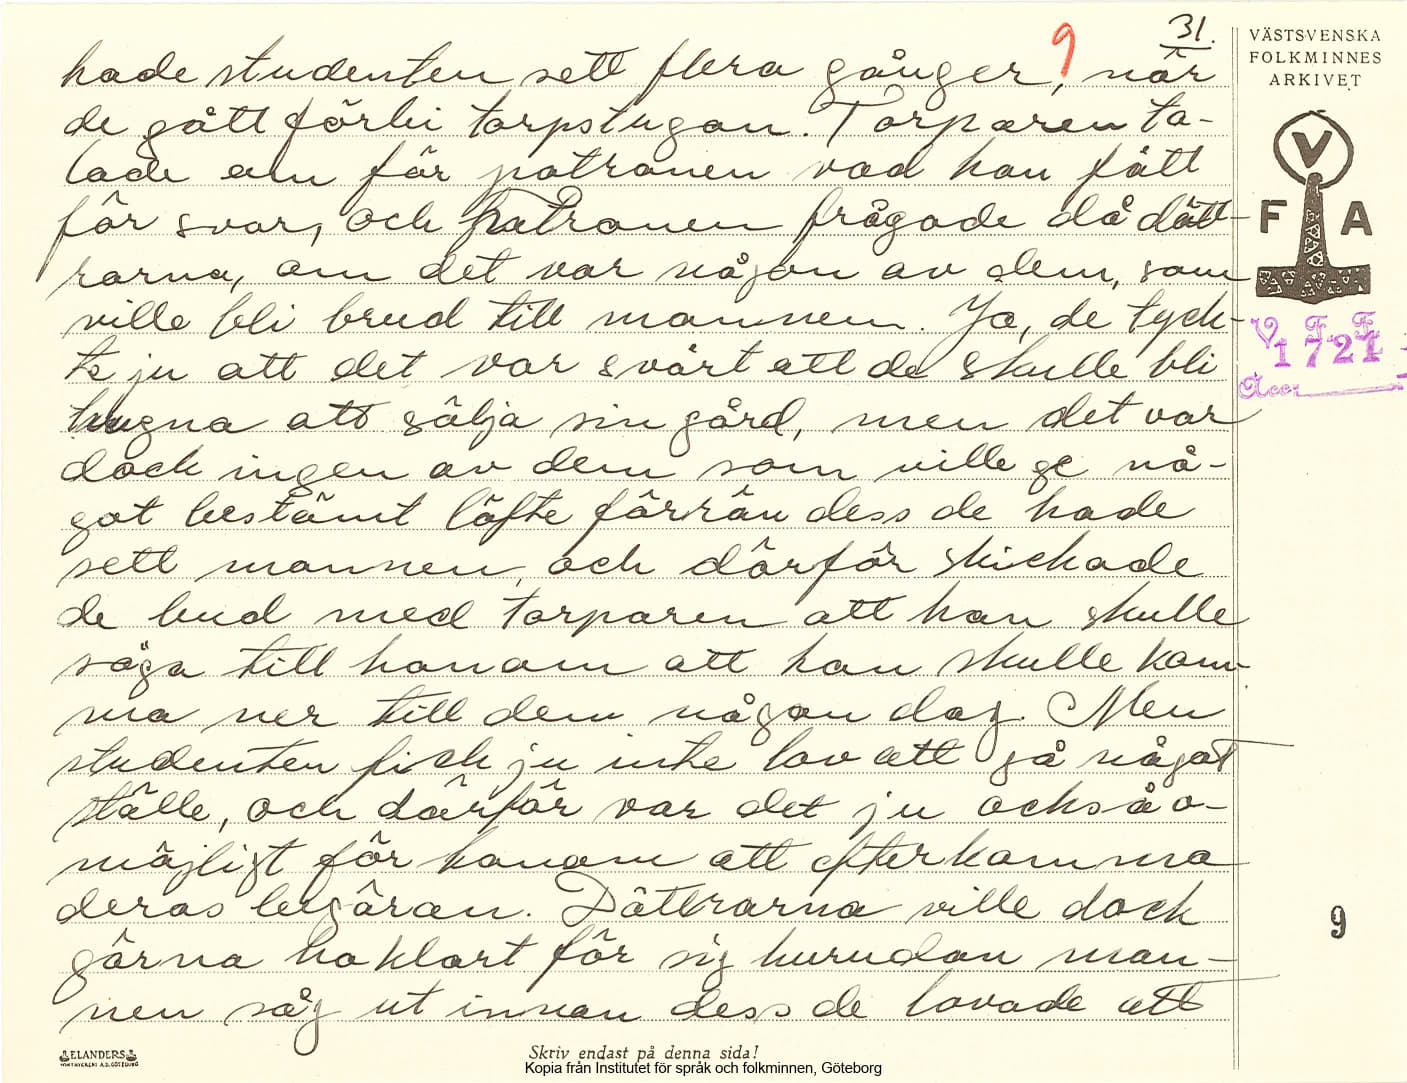 9
31.
hade studenten sett flera gånger, när
de gått förbi torpstugan. Torparen ta-
lade om för patronen vad han fått
för svar, och patronen frågade då dätt-
rarna, om det var någon av dem, som
ville bli brud till mannen. Ja, de tyck-
te ju att det var svårt att de skulle bli
tvugna att sälja sin gård, men det var
dock ingen av dem som ville ge nå-
got bestämt löfte förrän dess de hade
sett mannen, och därför skickade
de bud med torparen att han skulle
säga till honom att han skulle kom-
ma ner till dem någon dag. Men
studenten fick ju inte lov att gå något
ställe, och därför var det ju också o-
möjligt för honom att efterkomma
deras begäran. Döttrarna ville dock
gärna ha klart för sig hurudan man-
nen såg ut innan dess de lovade att
VÄSTSVENSKA
FOLKMINNES
ARKIVET
V
F A
V. F. F.
1721
Acc.
9
ELANDERS
Skriv endast på denna sida!
Kopia från Institutet för språk och folkminnen, Göteborg